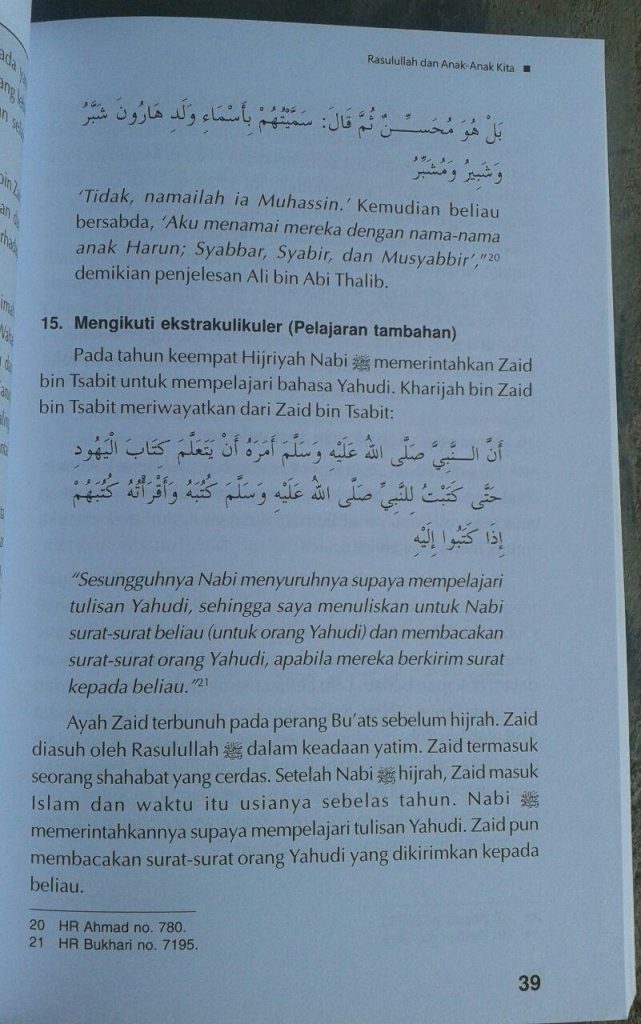 Rasulullah dan Anak-Anak Kita ■
بَلْ هُوَ مُحَسِّنٌ ثُمَّ قَالَ: سَمَّيْتُهُمْ بِأَسْمَاءِ وَلَدِ هَارُونَ شَبَّرُ
وَشَبِيرُ وَمُشَبِّرُ
'Tidak, namailah ia Muhassin.' Kemudian beliau
bersabda, 'Aku menamai mereka dengan nama-nama
anak Harun; Syabbar, Syabir, dan Musyabbir'," 20
demikian penjelesan Ali bin Abi Thalib.
15. Mengikuti ekstrakulikuler (Pelajaran tambahan)
Pada tahun keempat Hijriyah Nabi ﷺ memerintahkan Zaid
bin Tsabit untuk mempelajari bahasa Yahudi. Kharijah bin Zaid
bin Tsabit meriwayatkan dari Zaid bin Tsabit:
أَنَّ النَّبِيَّ صَلَّى اللهُ عَلَيْهِ وَسَلَّمَ أَمَرَهُ أَنْ يَتَعَلَّمَ كِتَابَ الْيَهُودِ
حَتَّى كَتَبْتُ لِلنَّبِيِّ صَلَّى اللهُ عَلَيْهِ وَسَلَّمَ كُتُبَهُ وَأَقْرَأْتُهُ كُتُبَهُمْ
إِذَا كَتَبُوا إِلَيْهِ
"Sesungguhnya Nabi menyuruhnya supaya mempelajari
tulisan Yahudi, sehingga saya menuliskan untuk Nabi
surat-surat beliau (untuk orang Yahudi) dan membacakan
surat-surat orang Yahudi, apabila mereka berkirim surat
kepada beliau." 21
Ayah Zaid terbunuh pada perang Bu'ats sebelum hijrah. Zaid
diasuh oleh Rasulullah ﷺ dalam keadaan yatim. Zaid termasuk
seorang shahabat yang cerdas. Setelah Nabi ﷺ hijrah, Zaid masuk
Islam dan waktu itu usianya sebelas tahun. Nabi ﷺ
memerintahkannya supaya mempelajari tulisan Yahudi. Zaid pun
membacakan surat-surat orang Yahudi yang dikirimkan kepada
beliau.
20 HR Ahmad no. 780.
21 HR Bukhari no. 7195.
39